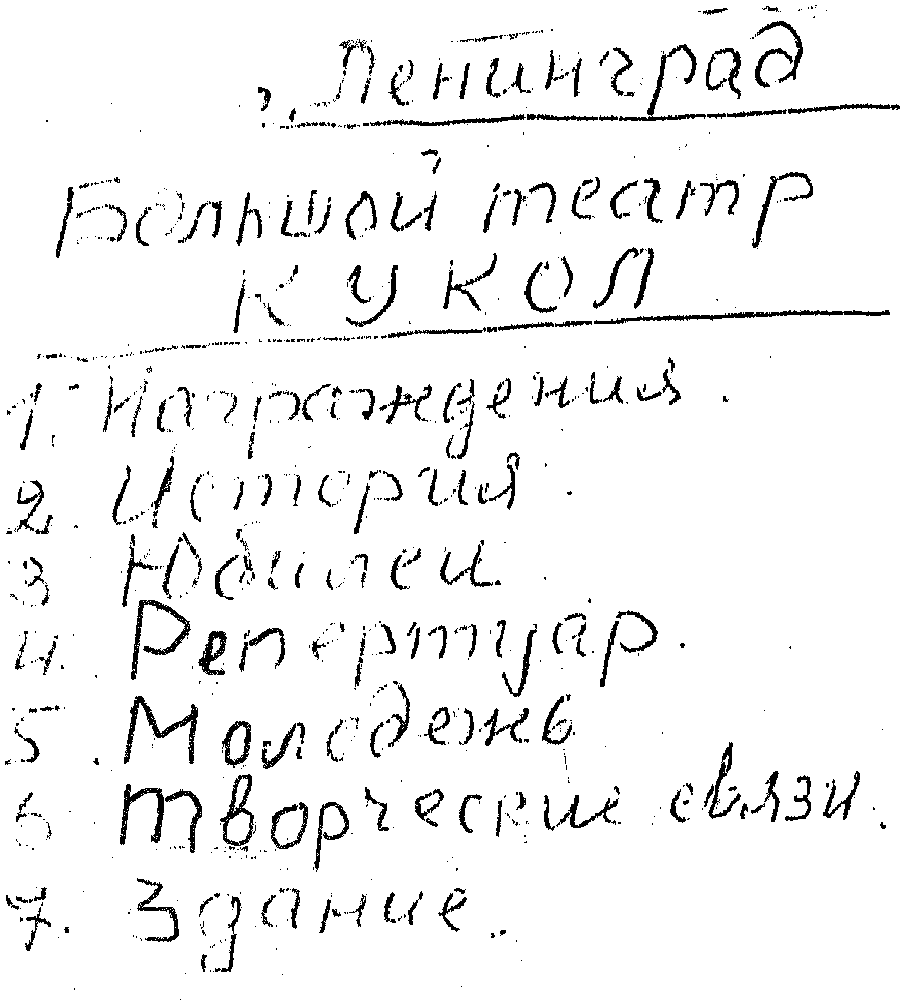 Ленинград
Большой театр
КУКОЛ
1. Награждения.
2. История.
3 Юбилеи.
4. Репертуар.
5. Молодежь
6 Творческие связи.
7. Здание.